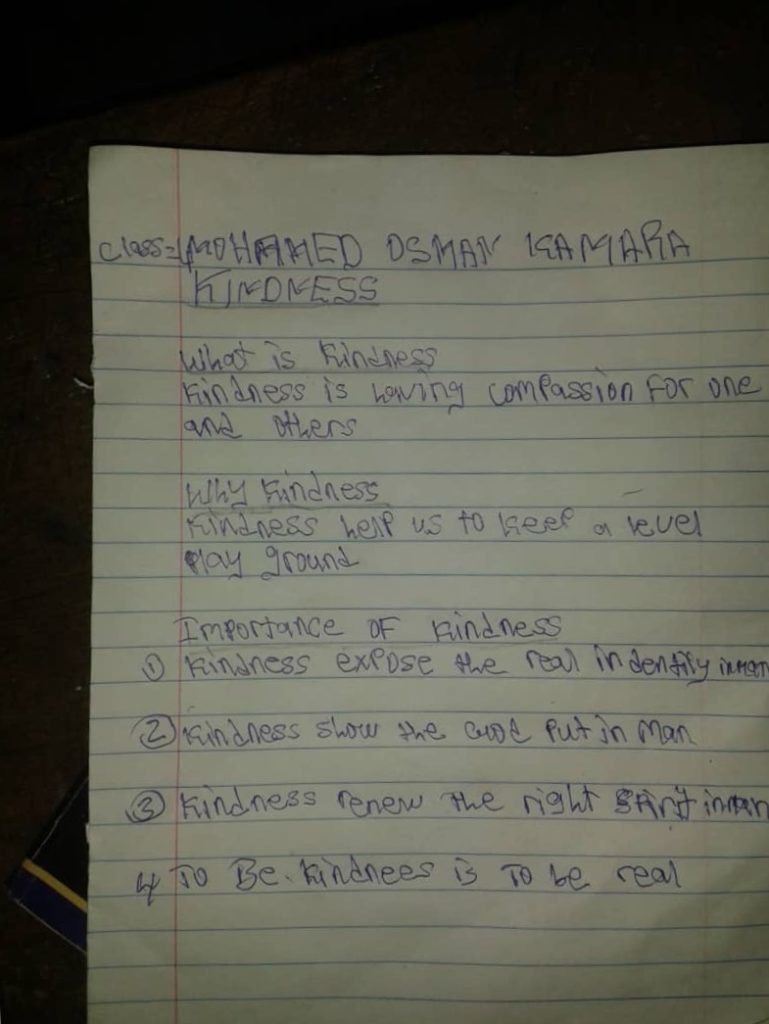 Class=4 MOHAMED OSMAN KAMARA
KINDNESS
What is Kindness
Kindness is having compassion For one
and others
Why Kindness
Kindness help us to keep a level
play ground
Importance OF Kindness
① Kindness expose the real indentity inman
② Kindness show the God Put in Man
③ Kindness renew the right inman
4 To Be. Kindnees is To be real